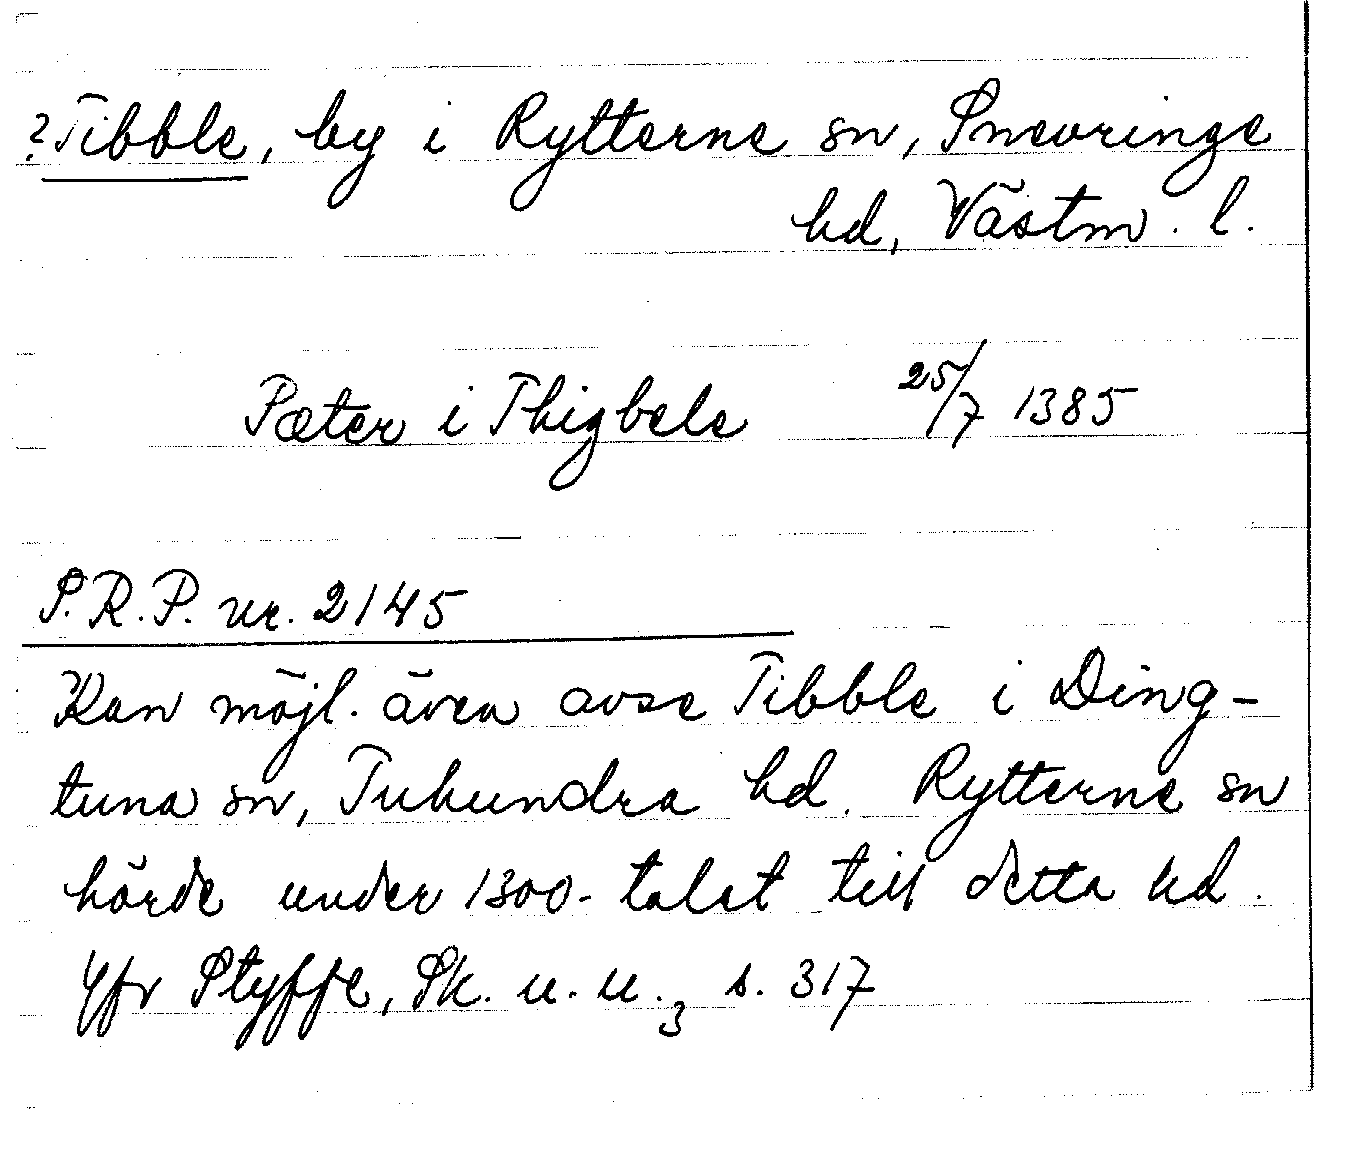 ?Tibble, by i Rytterne sn, Snevringe
hd, Västm. l.
Pæter i Thigbele 25/7 1385
S.R.P. nr. 2145
Kan möjl. även avse Tibble i Ding-
tuna sn, Tuhundra hd. Rytterne sn
hörde under 1300-talet till detta hd.
Jfr Styffe, Sk. u. u.3 s. 317